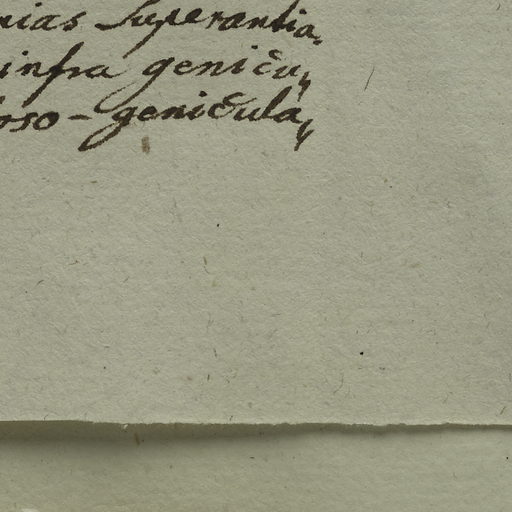 nias superantia.
infra genicu„
oso-genicula„